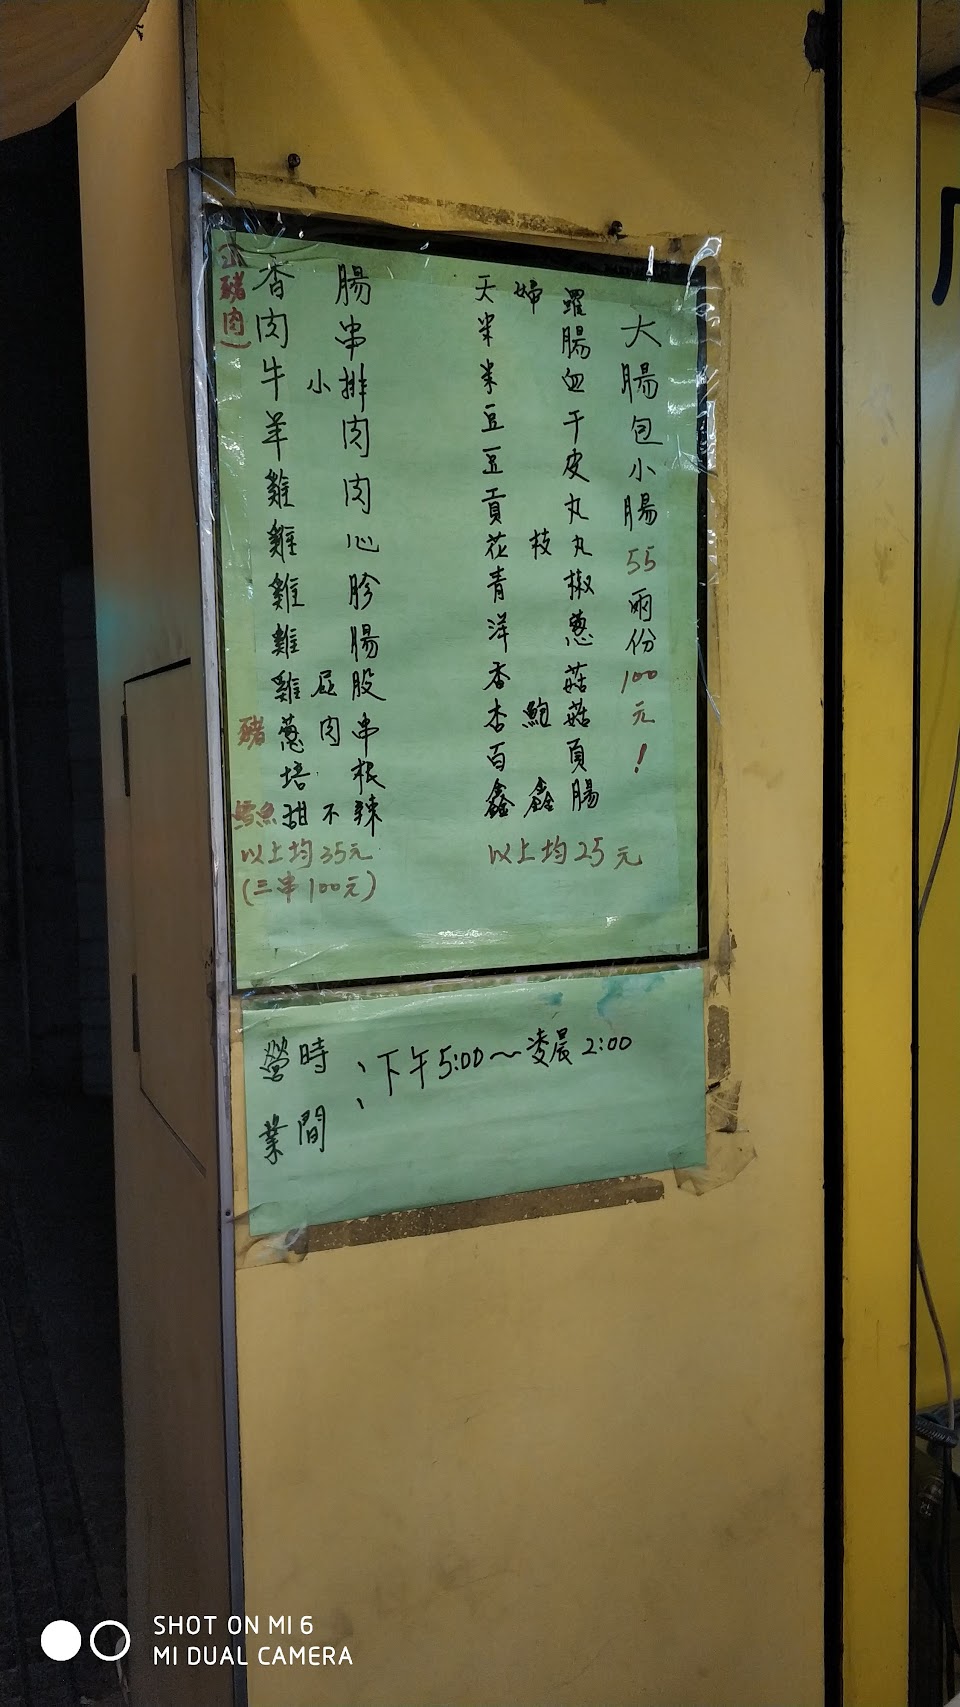 (山豬肉)
香腸
肉串
牛小排
羊肉
雞肉
雞心
雞胗
雞腸
雞屁股
豬蔥肉串
培根
鱈魚甜不辣
以上均35元
(三串100元)
天婦羅
米腸
米血
豆干
豆皮
貢丸
花枝丸
青椒
洋蔥
香菇
杏鮑菇
百頁
鑫鑫腸
以上均25元
大腸包小腸55兩份100元!
營業時間:下午5:00~凌晨2:00
SHOT ON MI 6
MI DUAL CAMERA